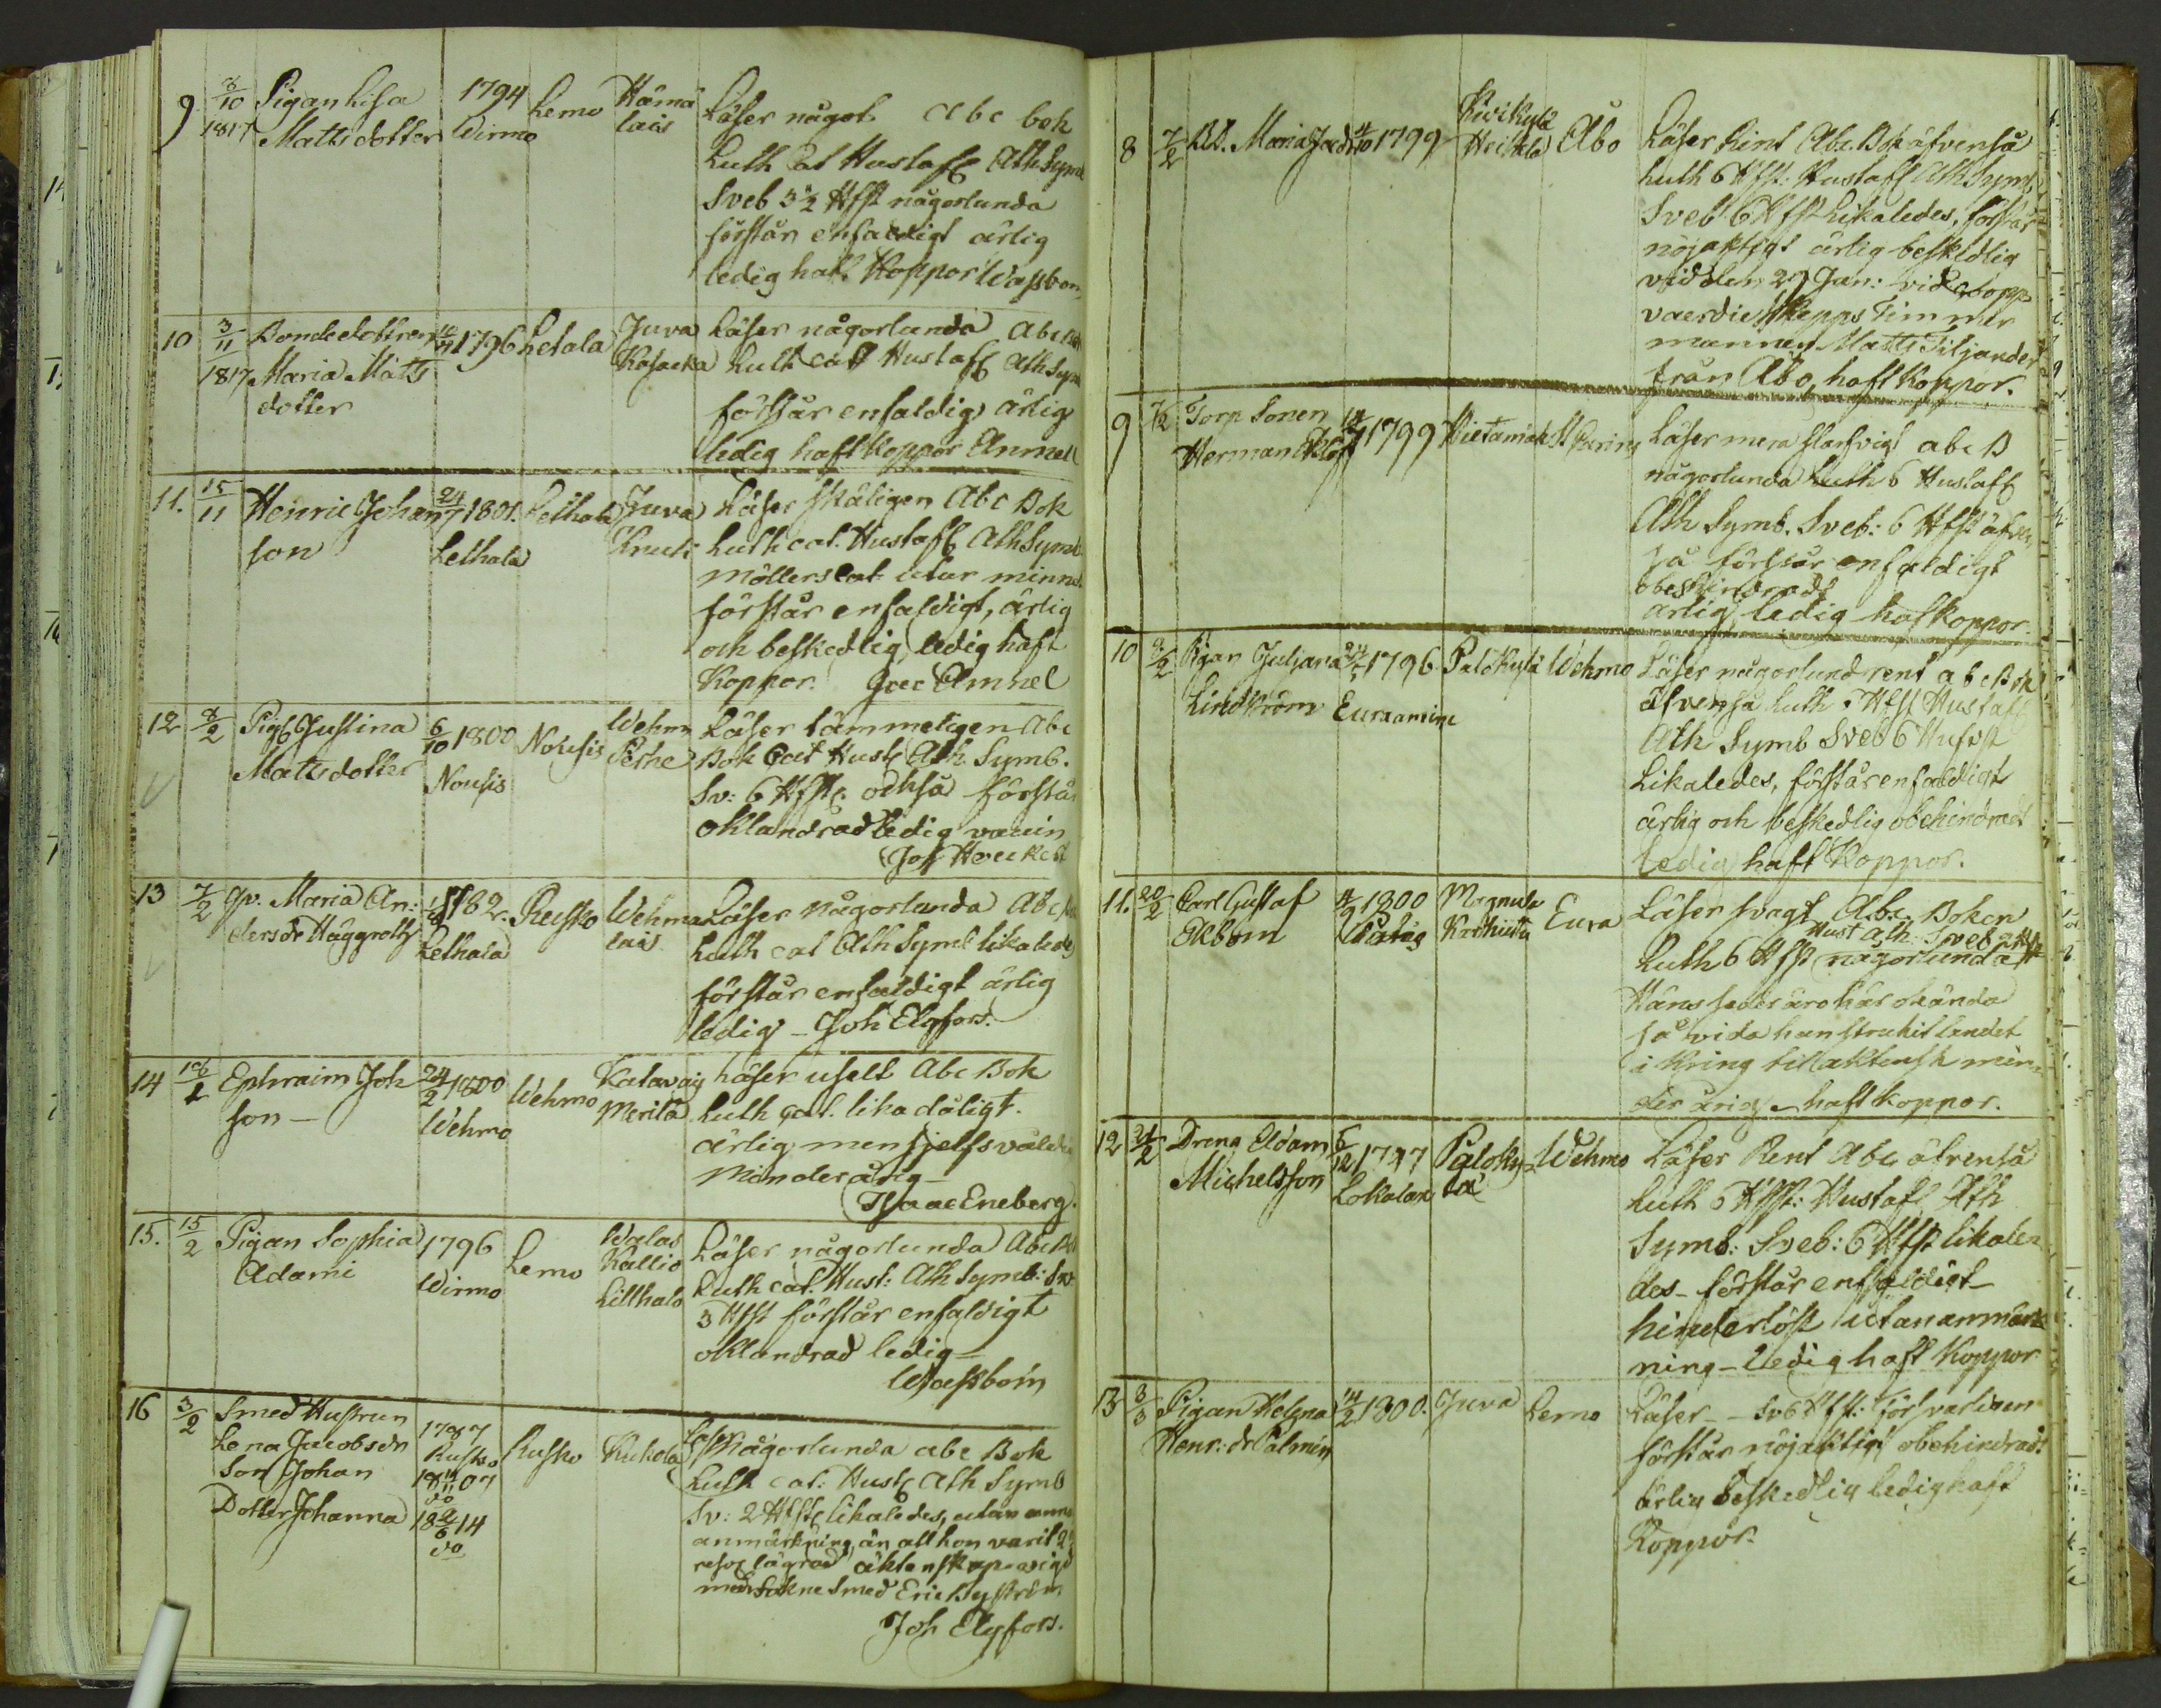 9 8/10 1817 Pigan Lisa Matts dotter 1794 Wirmo Lemo Hämä lais Läser något abc bok
Luth Cat Hustafl Ath Symb
Sveb 3 1/2 Hfst någorlunda
förstår enfaldigt ärlig
ledig haft Koppor Wassbom
10 3/11 1817 Bondedottren Maria Matts dotter 1796 Letala Juva Kasacka Läser någorlunda Abc Bok
Luth Cat Hustafl Ath Symb
förstår enfaldigt ärlig
ledig haft Koppor Amnell
11. 15/11 Henric Johan son 24/7 1801. Lethala Lethala Juva Knuti Läser skäligen Abc Bok
Luth cat. Hustafl Ath Symb
Möllers Cat. utur minnet
förstår enfaldigt, ärlig
och beskedlig, ledig haft
Koppor. Amnel
12 2/2 Pig. Justina Matts dotter 6/10 1800 Nousis Nousis Wehmo Perhe Läser tämmeligen Abc
Bok Cat Hust Ath Symb.
Sv: 6 Hfst. också förstår
oklandrad ledig
13 7/2 Qv. Maria An: dersdr Häggroth Lethala Rusko Wehma lais Läser någorlunda Abc
Luth cat Ath Symb likaledes
förstår enfaldigt ärlig
ledig – Joh Elgfors.
14 Ephraim Joh son – 24/2 1800 Wehmo Wehmo Merilä Läser uselt Abc Bok
Luth cat. lika dåligt.
ärlig men sjelfsvåldig
Minderårig –
Isaac Eneberg.
15. 15/2 Pigan Sophia Adami 1796 Wirmo Lemo Kallio Läser någorlunda Abc
Luth cat. Hust: Ath Symb: Sv
3 Hfst förstår enfaldigt
oklandrad ledig –
Wassbom
16 3/2 Smed Hustrun Lena Jacobsdr Son Johan Dotter Johanna 1787 Rusko do do Rusko Kukola Läser någorlunda abc Bok
Luth cat: Hust Ath Symb
Sv: 2 Hfst likaledes, utan
anmärkning, än att hon varit
lägrad
med Sokne Smed Eric Byström
Joh Elgfors.
8 7/2 Bd. Maria 1799 Kivikylä Heikkilä Åbo Läser Rent Abc. Bok äfvenså
Luth 6 Hfst: Hustafl Ath Symb
Sveb 6 Hfst Likaledes, förstår
nöjaktigt ärlig beskedlig
den 29 Jan:
Skepps Timmer
mannen Matts Tiljander
från Åbo, haft Koppor.
9 7/2 Torp Sonen Herman 1799 Hietamäki Läser mera slarfvigt abc B
någorlunda Luth 6 Hustafl
Ath Symb. Sveb: 6 Hfst äfven
så förstår enfaldigt
obehindradt
ärlig, ledig haft Koppor.
10 2/2 Pigan Juljana Lindström 1796 Euraaminne Palokylä Wehmo Läser någorlund rent abc Bok
äfvenså Luth Hfst Hustafl
Ath Symb Sveb 6 Hufvst
Likaledes, förstår enfaldigt
ärlig och beskedlig obehindrad
ledig haft Koppor.
11. 20/2 Carl Gustaf Ekbom 1800 Eura Läser svagt Abc. Boken
Hust Ath. Sveb
Luth 6 Hfst någorlunda
Hans seder äro här okända
så vida han strukit landet
i kring till äktensk min
der årig – haft koppor.
12 Dreng Adam Michelsson 6/12 1797 Lokalax Paloky lä Wehmo Läser Rent Abc äfvenså
Luth 6 Hfst: Hustafl Ath
Symb: Sveb: 6 Hfst likale
des – förstår enfaldigt –
hinderlöst utan anmärk
ning – Ledig haft Koppor
13 3/3 Pigan Helena Henr: dr Palmén 14/2 1800. Juva Lemo Läser – – Sv 6 Hfst: försvarligen
förstår nöjaktigt obehindradt
ärlig beskedlig ledig haft
Koppor.